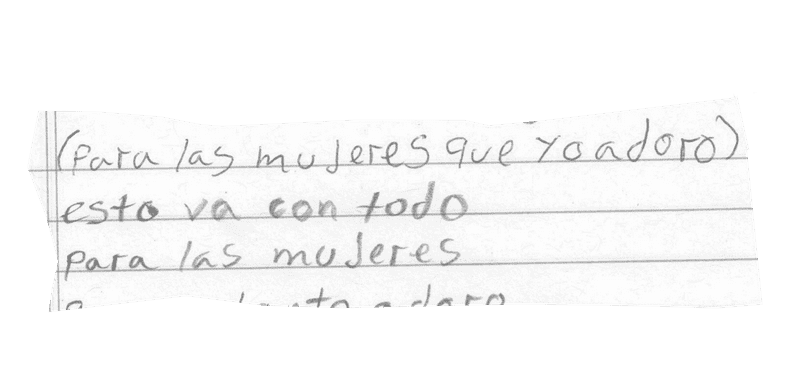 (para las mujeres que yo adoro)
esto va con todo
para las mujeres
adoro